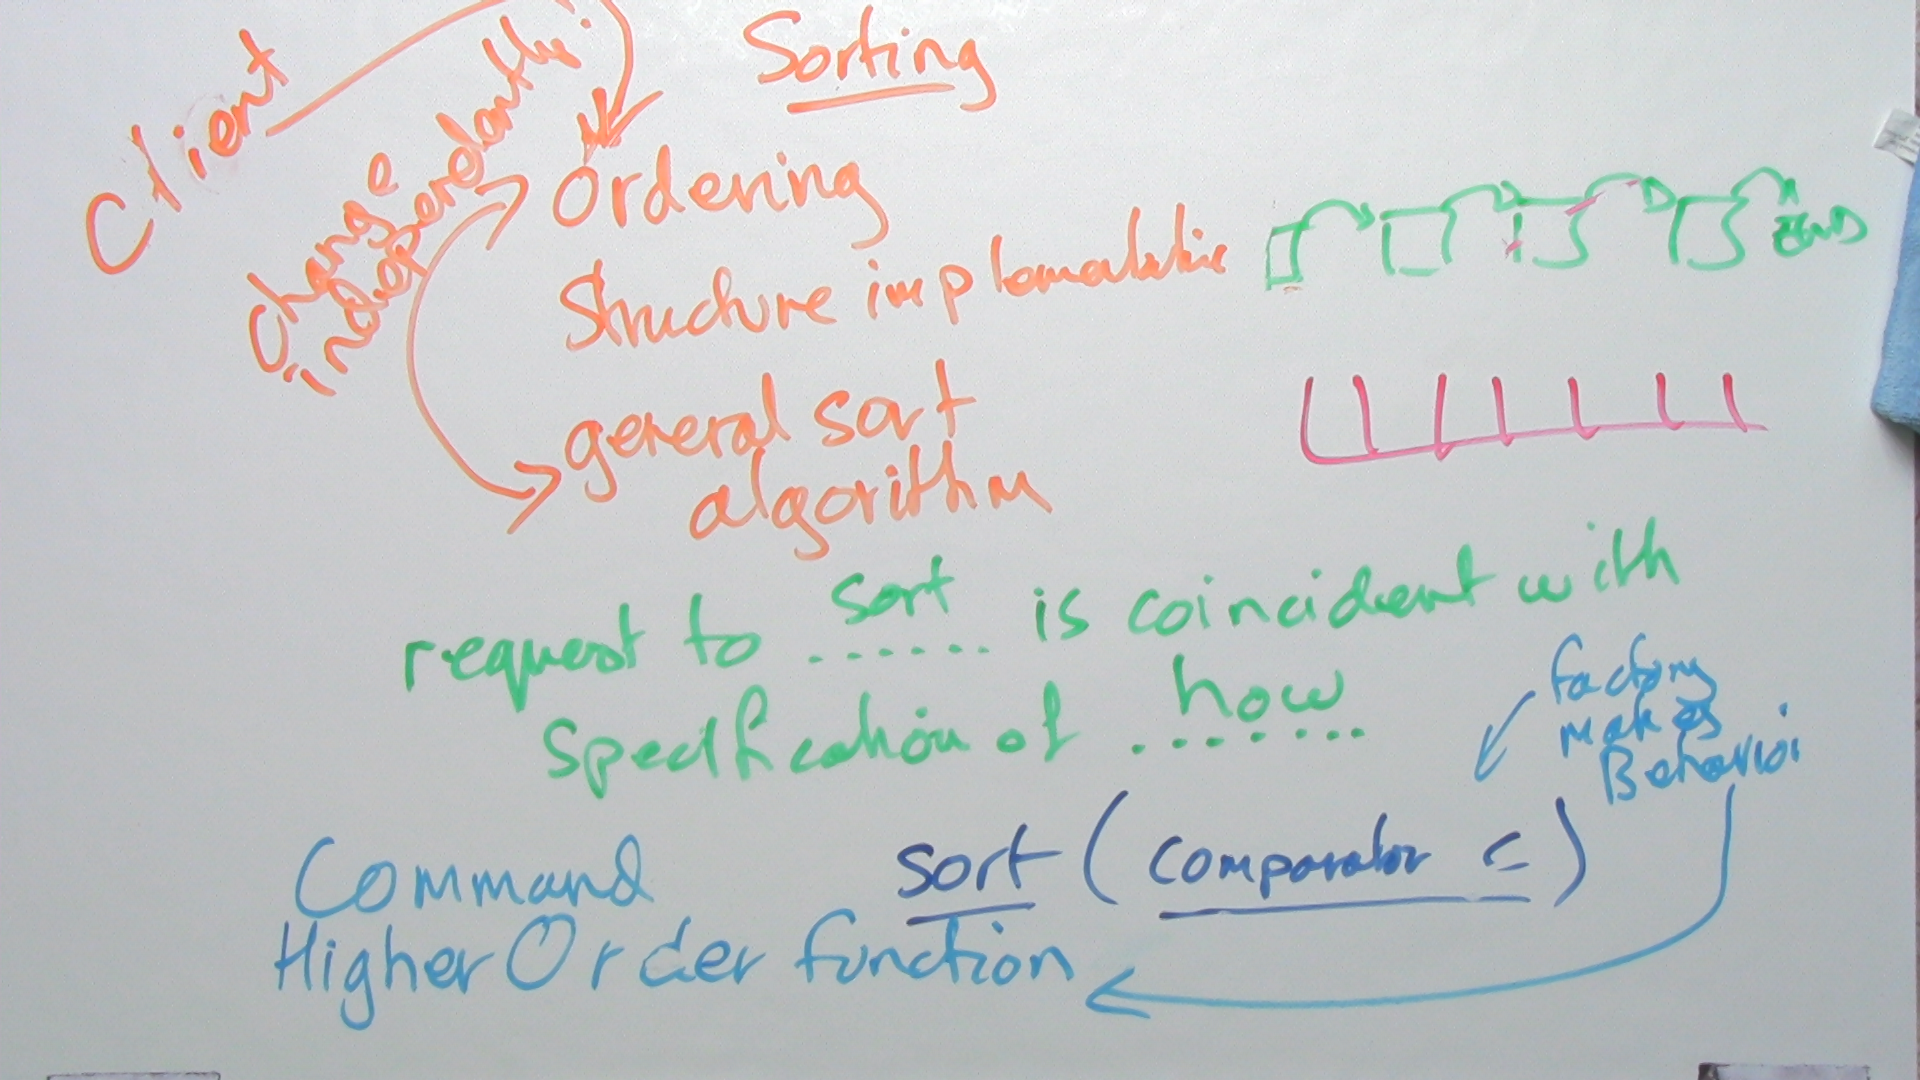 Sorting
Client
change
independantly!
Ordering
Structure implementatin
END
general sort
algorithm
request to sort is coincident with
specification of how
factory
makes
Behavior
sort (comparator c)
Command
Higher Order function